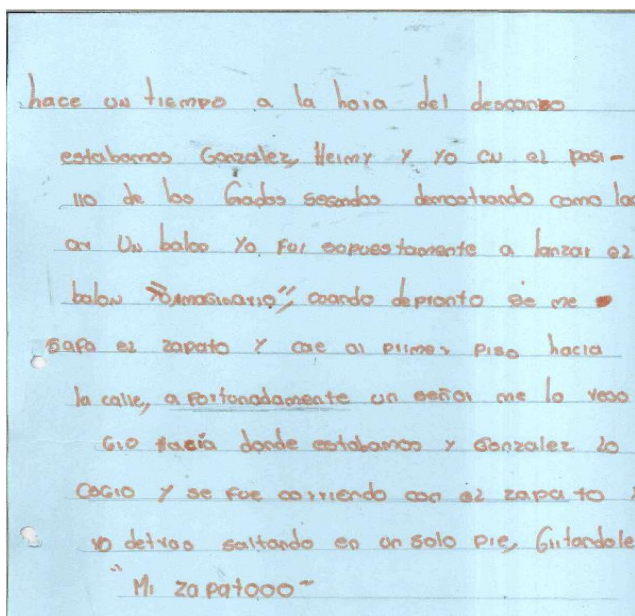 hace un tiempo a la hora del descanso
estabamos Gonzalez, Heimy y yo en el pasi-
llo de los Gados segundos demostrando como laz
ar Un balon Yo Fui sopuestamente a lanzar el
balon "imaginario", cuando depronto se me
safa el zapato y cae al primer piso hacia
la calle, a Fortonadamente un señor me lo reco
Gio Hacia donde estabamos y Gonzalez lo
COGIO y se Fue corriendo con el zapato y
yo detras saltando en un solo pie, Gritandole
"Mi zapatooo"